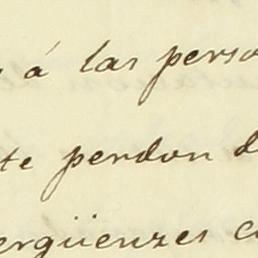 á las perso
te perdon d
ergüenzes c